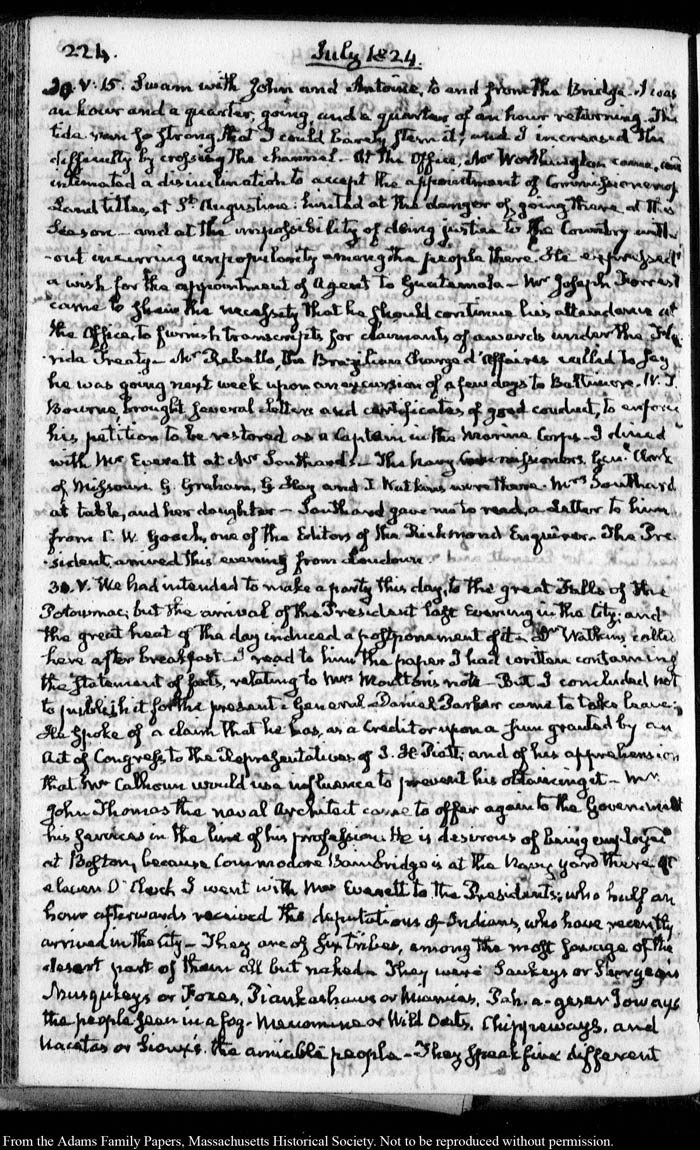 224.
July 1824.
29. V: 15. Swam with John and Antoine, to and from the Bridge. I was
an hour and a quarter, going, and a quarter of an hour returning. The
tide ran so strong, that I could barely stem it; and I increased the
difficulty by crossing the channel. At the Office, Mr Worthington came, and
intimated a disinclination to accept the appointment of Commissioner of
Land titles, at St Augustine: hinted at the danger of going there at this
Season — and at the impossibility of doing justice to the Country with-
-out incurring unpopularity among the people there. He expressed
a wish for the appointment of Agent to Guatemala — Mr Joseph Forrest
came to shew the necessity that he should continue his attendance at
the Office, to furnish transcripts for claimants of awards under the Flo-
-rida Treaty — Mr Rebello, the Brazilian Chargé d'Affaires called to say
he was going next week upon an excursion of a few days to Baltimore. W. J.
Bourne, brought several letters and certificates of good conduct, to enforce
his petition to be restored as a Captain in the Marine Corps. I dined
with Mr Everett at Mr Southard's — The Navy Commissioners. Genl. Clark
of Missouri G. Graham, G. Hay and T. Watkins were there. Mrs Southard
at table, and her daughter — Southard gave me to read, a Letter to him
from C. W. Gooch, one of the Editors of the Richmond Enquirer. The Pre-
-sident arrived this evening from Loudoun.
30. V. We had intended to make a party this day, to the great Falls of the
Potowmac; but the arrival of the President last Evening in the City; and
the great heat of the day induced a postponement of it. Dr Watkins, called
here after breakfast. I read to him the paper I had written containing
the Statement of facts, relating to Mrs Moulton's note — But I concluded not
to publish it for the present. General Daniel Parker came to take leave:
He spoke of a claim that he has, as a Creditor upon a sum granted by an
Act of Congress to the Representatives of J. H. Piatt; and of his apprehension
that Mr Calhoun would use influence to prevent his obtaining it — Mr
John Thomas the naval Architect came to offer again to the Government
his services in the line of his profession. He is desirous of being employed
at Boston, because Commodore Bainbridge is at the Navy yard there. At
eleven O'Clock I went with Mr Everett to the President's; who half an
hour afterwards received the deputations of Indians, who have recently
arrived in the City — They are of six tribes, among the most savage of the
desert part of them all but naked. They were Saukeys or
Musqukeys or Foxes, Piankashaws or Miamies, Pah-a-geser Ioways
the people seen in a fog. Menomine or Wild Oats, Chippeways, and
Nacatas or Sioux's. the amicable people — They speak five different
From the Adams Family Papers, Massachusetts Historical Society. Not to be reproduced without permission.